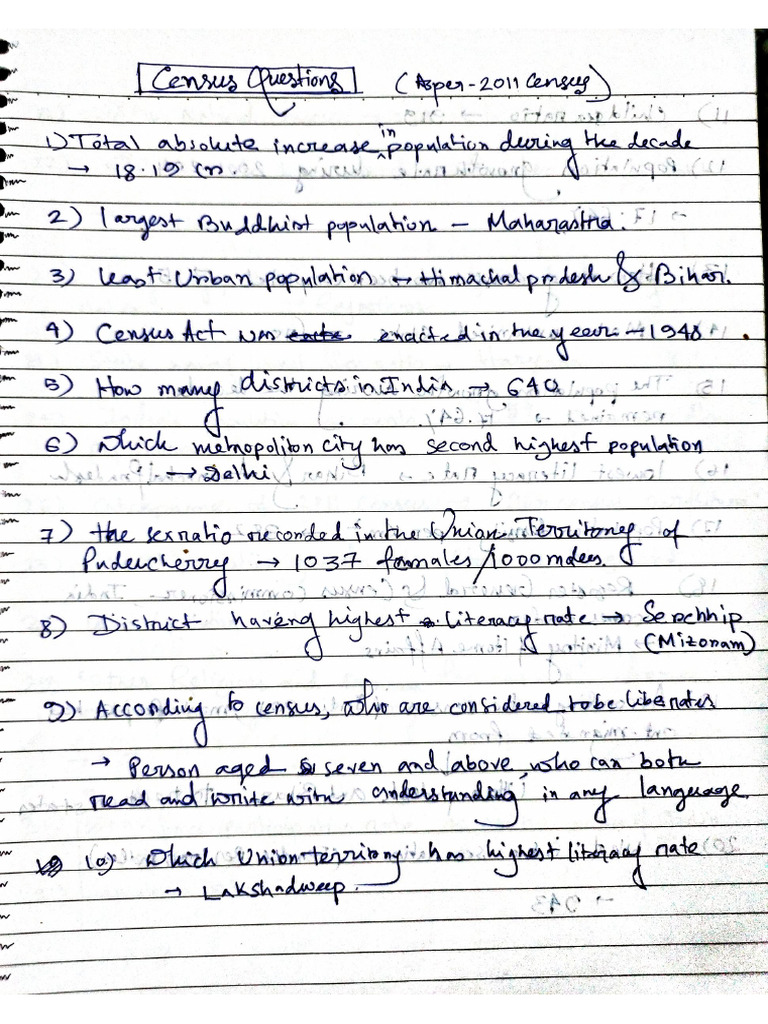 Census Questions (Asper-2011 Census)
1) Total absolute increase in population during the decade
→ 18.19 Cr.
2) largest Buddhist population - Maharastra.
3) least Urban population → Himachal pradesh & Bihar.
4) Census Act was enacted in the year - 1948.
5) How many districts in India → 640
6) which metropoliton city has second highest population
→ Delhi
7) the sexratio recorded in the Union Territory of
Puducherry → 1037 females/1000 males.
8) District having highest literacy rate → Serchhip
(Mizoram)
9) According to census, who are considered to be liberates
→ Person aged seven and above, who can both
read and write with understanding in any language.
10) which Union territory has highest literacy rate
→ Lakshadweep.